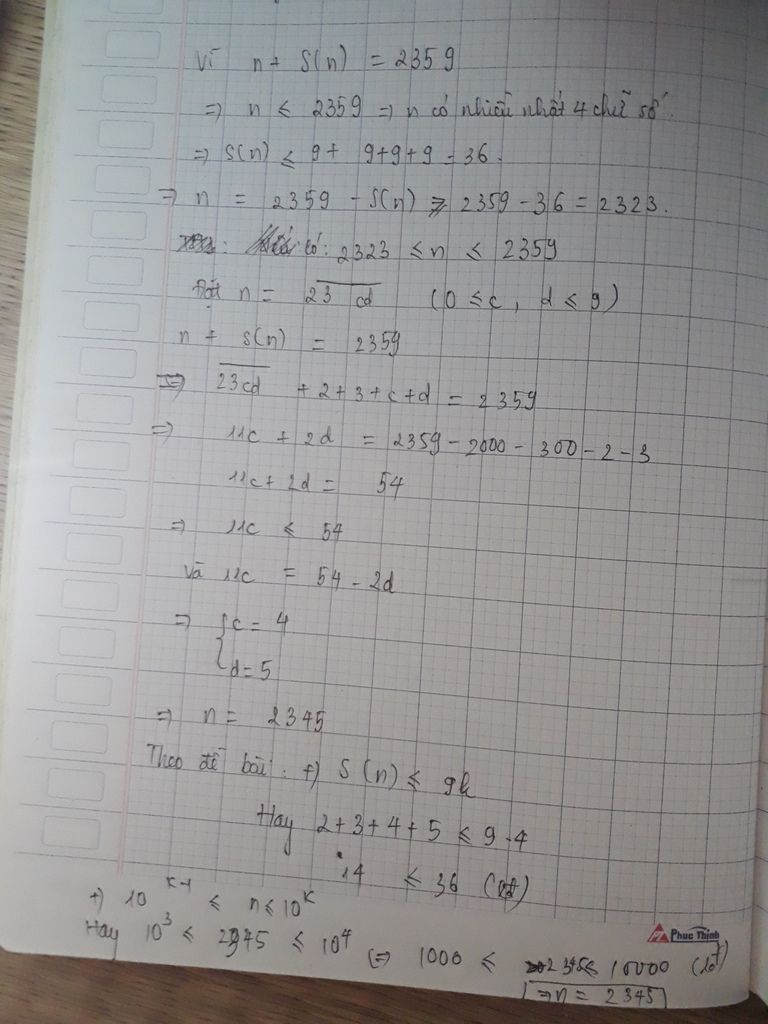 Vì n + S(n) = 2359
⇒ n ≤ 2359 ⇒ n có nhiều nhất 4 chữ số.
⇒ S(n) ≤ 9 + 9+9+9 = 36.
⇒ n = 2359 - S(n) ≥ 2359 - 36 = 2323.
có: 2323 ≤ n ≤ 2359
Đặt n = \overline{23cd} (0 ≤ c, d ≤ 9)
n + S(n) = 2359
⇒ \overline{23cd} + 2+3+c+d = 2359
⇒ 11c + 2d = 2359 - 2000 - 300 - 2 - 3
11c + 2d = 54
⇒ 11c ≤ 54
và 11c = 54 - 2d
⇒ { c = 4
d = 5
⇒ n = 2345
Theo đề bài: +) S(n) ≤ 9k
Hay 2+3+4+5 ≤ 9.4
14 ≤ 36 (lđ)
+) 10^{k-1} ≤ n ≤ 10^k
Hay 10^3 ≤ 2345 ≤ 10^4 (⇒ 1000 ≤ 2345 ≤ 10000 (lđ)
⇒ n = 2345
Phuc Thinh